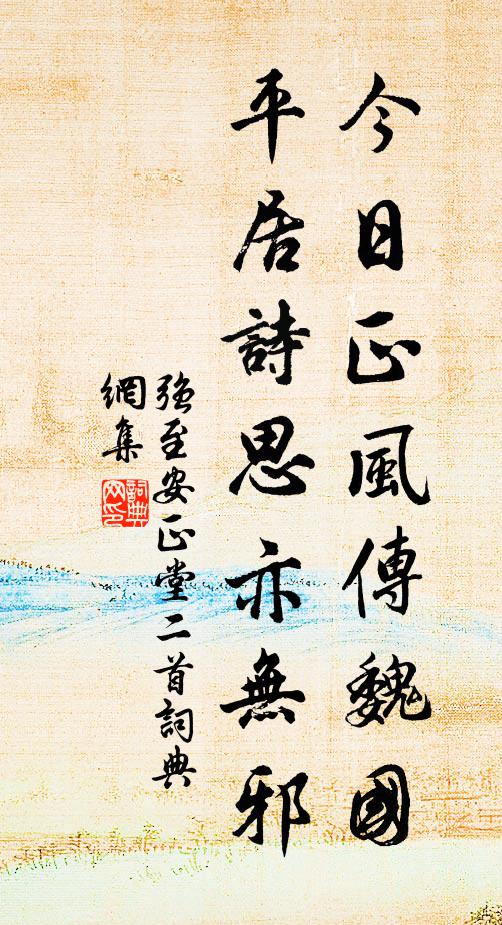 今日正風傳魏國
平居詩思亦無邪
強至安正堂二首詞典
網集
詞典
网印